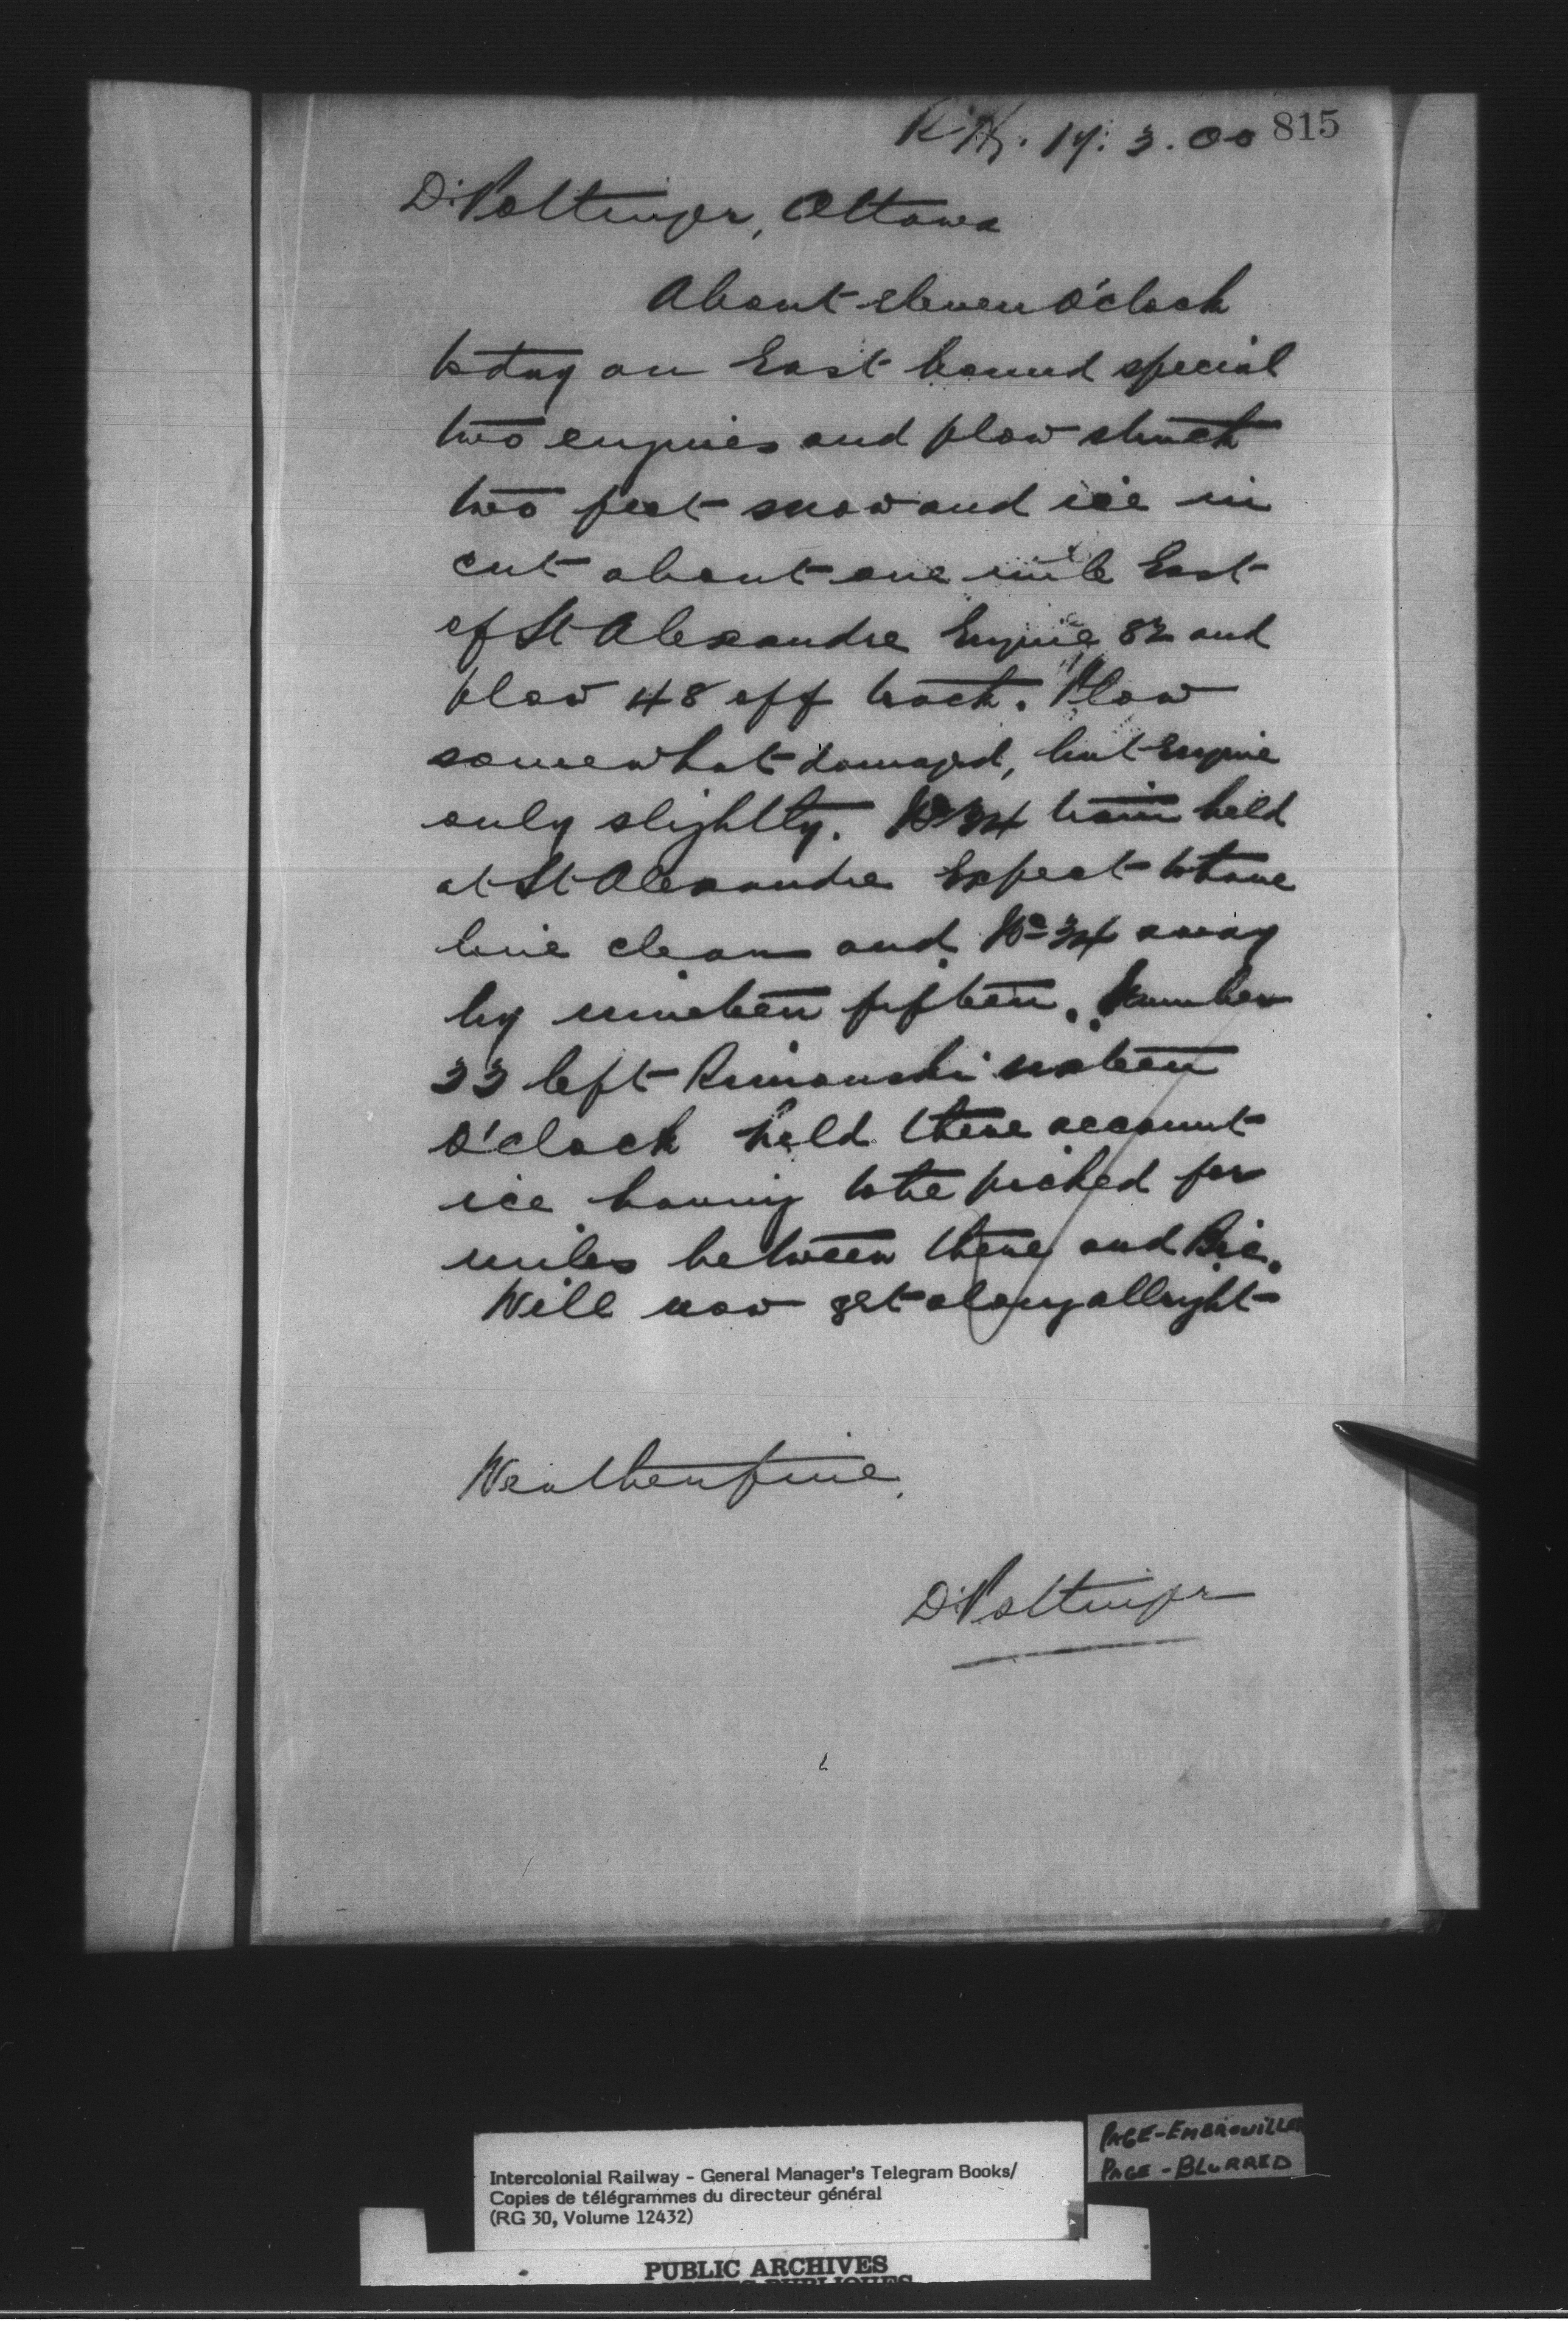 815
17.3.00
D. Pottinger, Ottawa
About eleven o'clock
today on East bound special
two engines and plow struck
two feet snow and ice in
cut about one mile East
of St Alexandre Engine 82 and
plow 48 off track. Plow
somewhat damaged, but Engine
only slightly. No 34 train held
at St Alexandre Expect to have
line clear and No 34 away
by nineteen fifteen. Number
33 left Rimouski sixteen
o'clock held there account
ice having to be picked for
miles between there and Bic.
Will now get along allright
Weather fine.
D. Pottinger
PAGE-EMBROUILLEE
PAGE-BLURRED
Intercolonial Railway - General Manager's Telegram Books/
Copies de télégrammes du directeur général
(RG 30, Volume 12432)
PUBLIC ARCHIVES